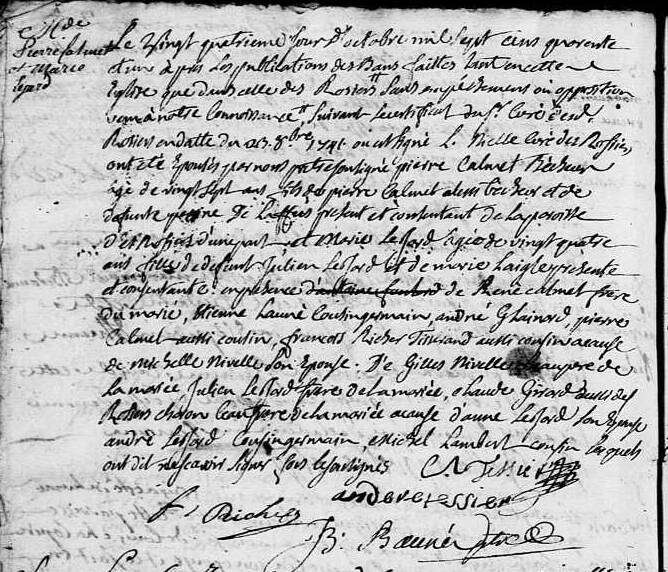 M de
Pierre Calmet
et Marie
Lepard
Le vingt quatrieme Jour d'octobre mil sept cens quarente
et un après Les publications des Bans faittes tant en cette
Eglise que dans celle des Rosiers sans empeschement ou opposition
venu à notre connoissance, suivant le certificat du Sr. Curé des
Rosiers en datte du 23. 8bre 1741 où est signé L. Nielle curé des Rosiers
ont été Epousés par nous pretre soussigné pierre Calmet Becheur
agé de vingt sept ans fils de pierre Calmet aussi becheur et de
defunte perine present et consentant de la paroisse
des Rosiers d'une part et Marie Lessard agée de vingt quatre
ans fille de defunt Julien Lessard et de marie Laigle presente
et consentante en presence de René Calmet frere
du marié, Etienne Launé Cousin germain, andré Glainard, pierre
Calmet aussi cousin, francois Richer Tisserand aussi cousin a cause
de michelle Nivelle son Epouse. De Gilles Nivelle beaupere de
La mariée Julien Lessard frere de la mariée, Claude Girard aussi des
Rosiers charon beaufrere de la mariée a cause d'anne Lessard son Epouse
andré Lessard Cousin germain, Michel Lambert cousin Lesquels
ont dit ne scavoir signer fors les soussignés
C. A. Tessier
andre tessier
f. Richer
B. Baunée ptre